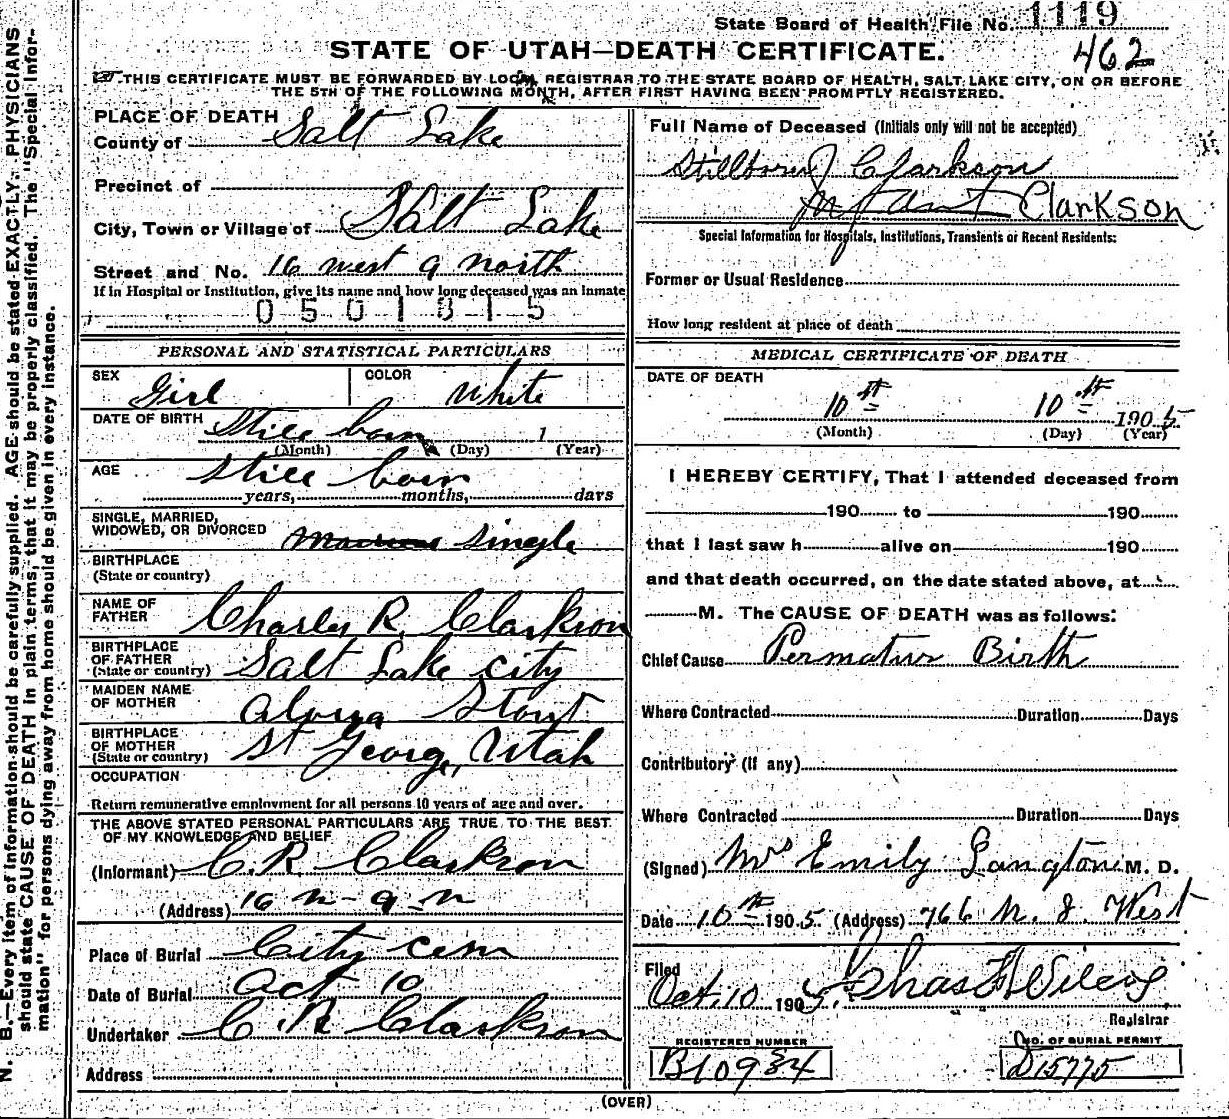 State Board of Health File No. 1119
462
STATE OF UTAH—DEATH CERTIFICATE.
THIS CERTIFICATE MUST BE FORWARDED BY LOCAL REGISTRAR TO THE STATE BOARD OF HEALTH, SALT LAKE CITY, ON OR BEFORE
THE 5TH OF THE FOLLOWING MONTH, AFTER FIRST HAVING BEEN PROMPTLY REGISTERED.
PLACE OF DEATH
County of Salt Lake
Precinct of
City, Town or Village of Salt Lake
Street and No. 16 west 9 north
If in Hospital or Institution, give its name and how long deceased was an inmate
0501815
PERSONAL AND STATISTICAL PARTICULARS
SEX Girl COLOR White
DATE OF BIRTH Still born 1
(Month) (Day) (Year)
AGE Still born
years, months, days
SINGLE, MARRIED,
WIDOWED, OR DIVORCED single
BIRTHPLACE
(State or country)
NAME OF
FATHER Charles R. Clarkson
BIRTHPLACE
OF FATHER
(State or country) Salt Lake city
MAIDEN NAME
OF MOTHER Stout
BIRTHPLACE
OF MOTHER
(State or country) St Georg, Utah
OCCUPATION
Return remunerative employment for all persons 10 years of age and over.
THE ABOVE STATED PERSONAL PARTICULARS ARE TRUE TO THE BEST
OF MY KNOWLEDGE AND BELIEF
(Informant) C. R. Clarkson
(Address) 16 n - 9 - n
Place of Burial City cem
Date of Burial Oct 10
Undertaker C. R. Clarkson
Address
Full Name of Deceased (Initials only will not be accepted)
Stillborn Clarkson
Infant Clarkson
Special Information for Hospitals, Institutions, Transients or Recent Residents:
Former or Usual Residence
How long resident at place of death
MEDICAL CERTIFICATE OF DEATH
DATE OF DEATH
10th 10th 1905
(Month) (Day) (Year)
I HEREBY CERTIFY, That I attended deceased from
190 to 190
that I last saw h alive on 190
and that death occurred, on the date stated above, at
M. The CAUSE OF DEATH was as follows:
Chief Cause Permatur Birth
Where Contracted Duration Days
Contributory (if any)
Where Contracted Duration Days
(Signed) Mrs Emily Langton M. D.
Date 10th 1905 (Address) 766 N. 2. West
Filed Oct. 10 1905. Chas F Wilcox
Registrar
REGISTERED NUMBER
B10934
NO. OF BURIAL PERMIT
D15775
(OVER)
N. B.—Every item of information should be carefully supplied. AGE should be stated EXACTLY. PHYSICIANS
should state CAUSE OF DEATH in plain terms, that it may be properly classified. The "Special Infor-
mation" for persons dying away from home should be given in every instance.